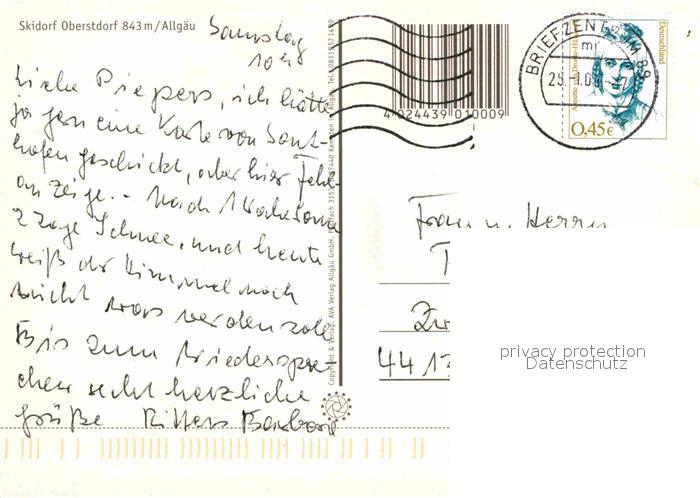 Skidorf Oberstdorf 843 m / Allgäu
Samstag
10 48
Liebe Piepers, ich hätte
ja gern eine Karte von Sont-
hofen geschickt, aber hier Fehl-
anzeige. – Nach 1 Woche Sonne
2 Tage Schnee, und heute
weiß der Himmel noch
nicht was werden soll.
Bis zum Wiederspre-
chen recht herzliche
Grüße Ritters Barbara
Copyright & Verlag: AVA Verlag Allgäu GmbH, Postfach 3153, 87440 Kempten im Allgäu, Tel. 0831/571400
4 024439 010009
BRIEFZENTRUM 89
mj
Deutschland
Annette von Droste-Hülshoff
0,45€
Frau u. Herrn
4413
privacy protection
Datenschutz